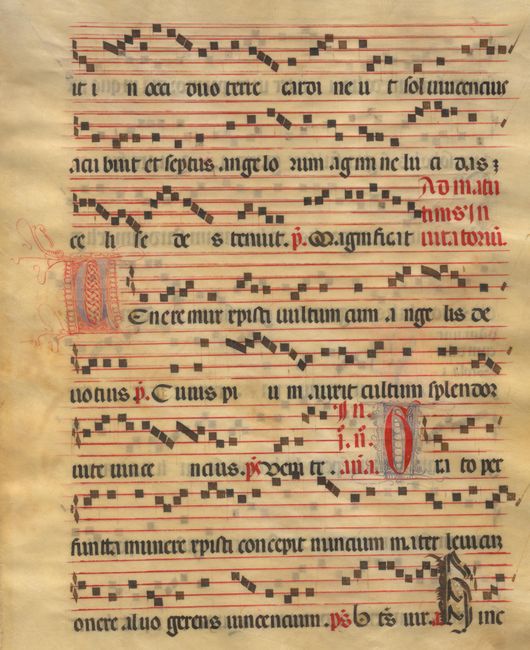 it i n occi duo terre cardi ne u t sol vincencius
acu buit et septus angelo rum agmine lu ci das
ce li se de s tenuit. p̃. Magnificat Ad matu
tinus In
uitatoriũ.
Veneremur xpisti vultum cum ange lis de
uotius p̃. Cuius pi u m aurit cultum splendor
uite vince ncius. p̃s Veni te. In
i. ñ.
añа. Ora to per
functa munere xpisti concepit nuncium mater leuican
onere aluo gerens vincencium. p̃s B ts uir. a Hinc